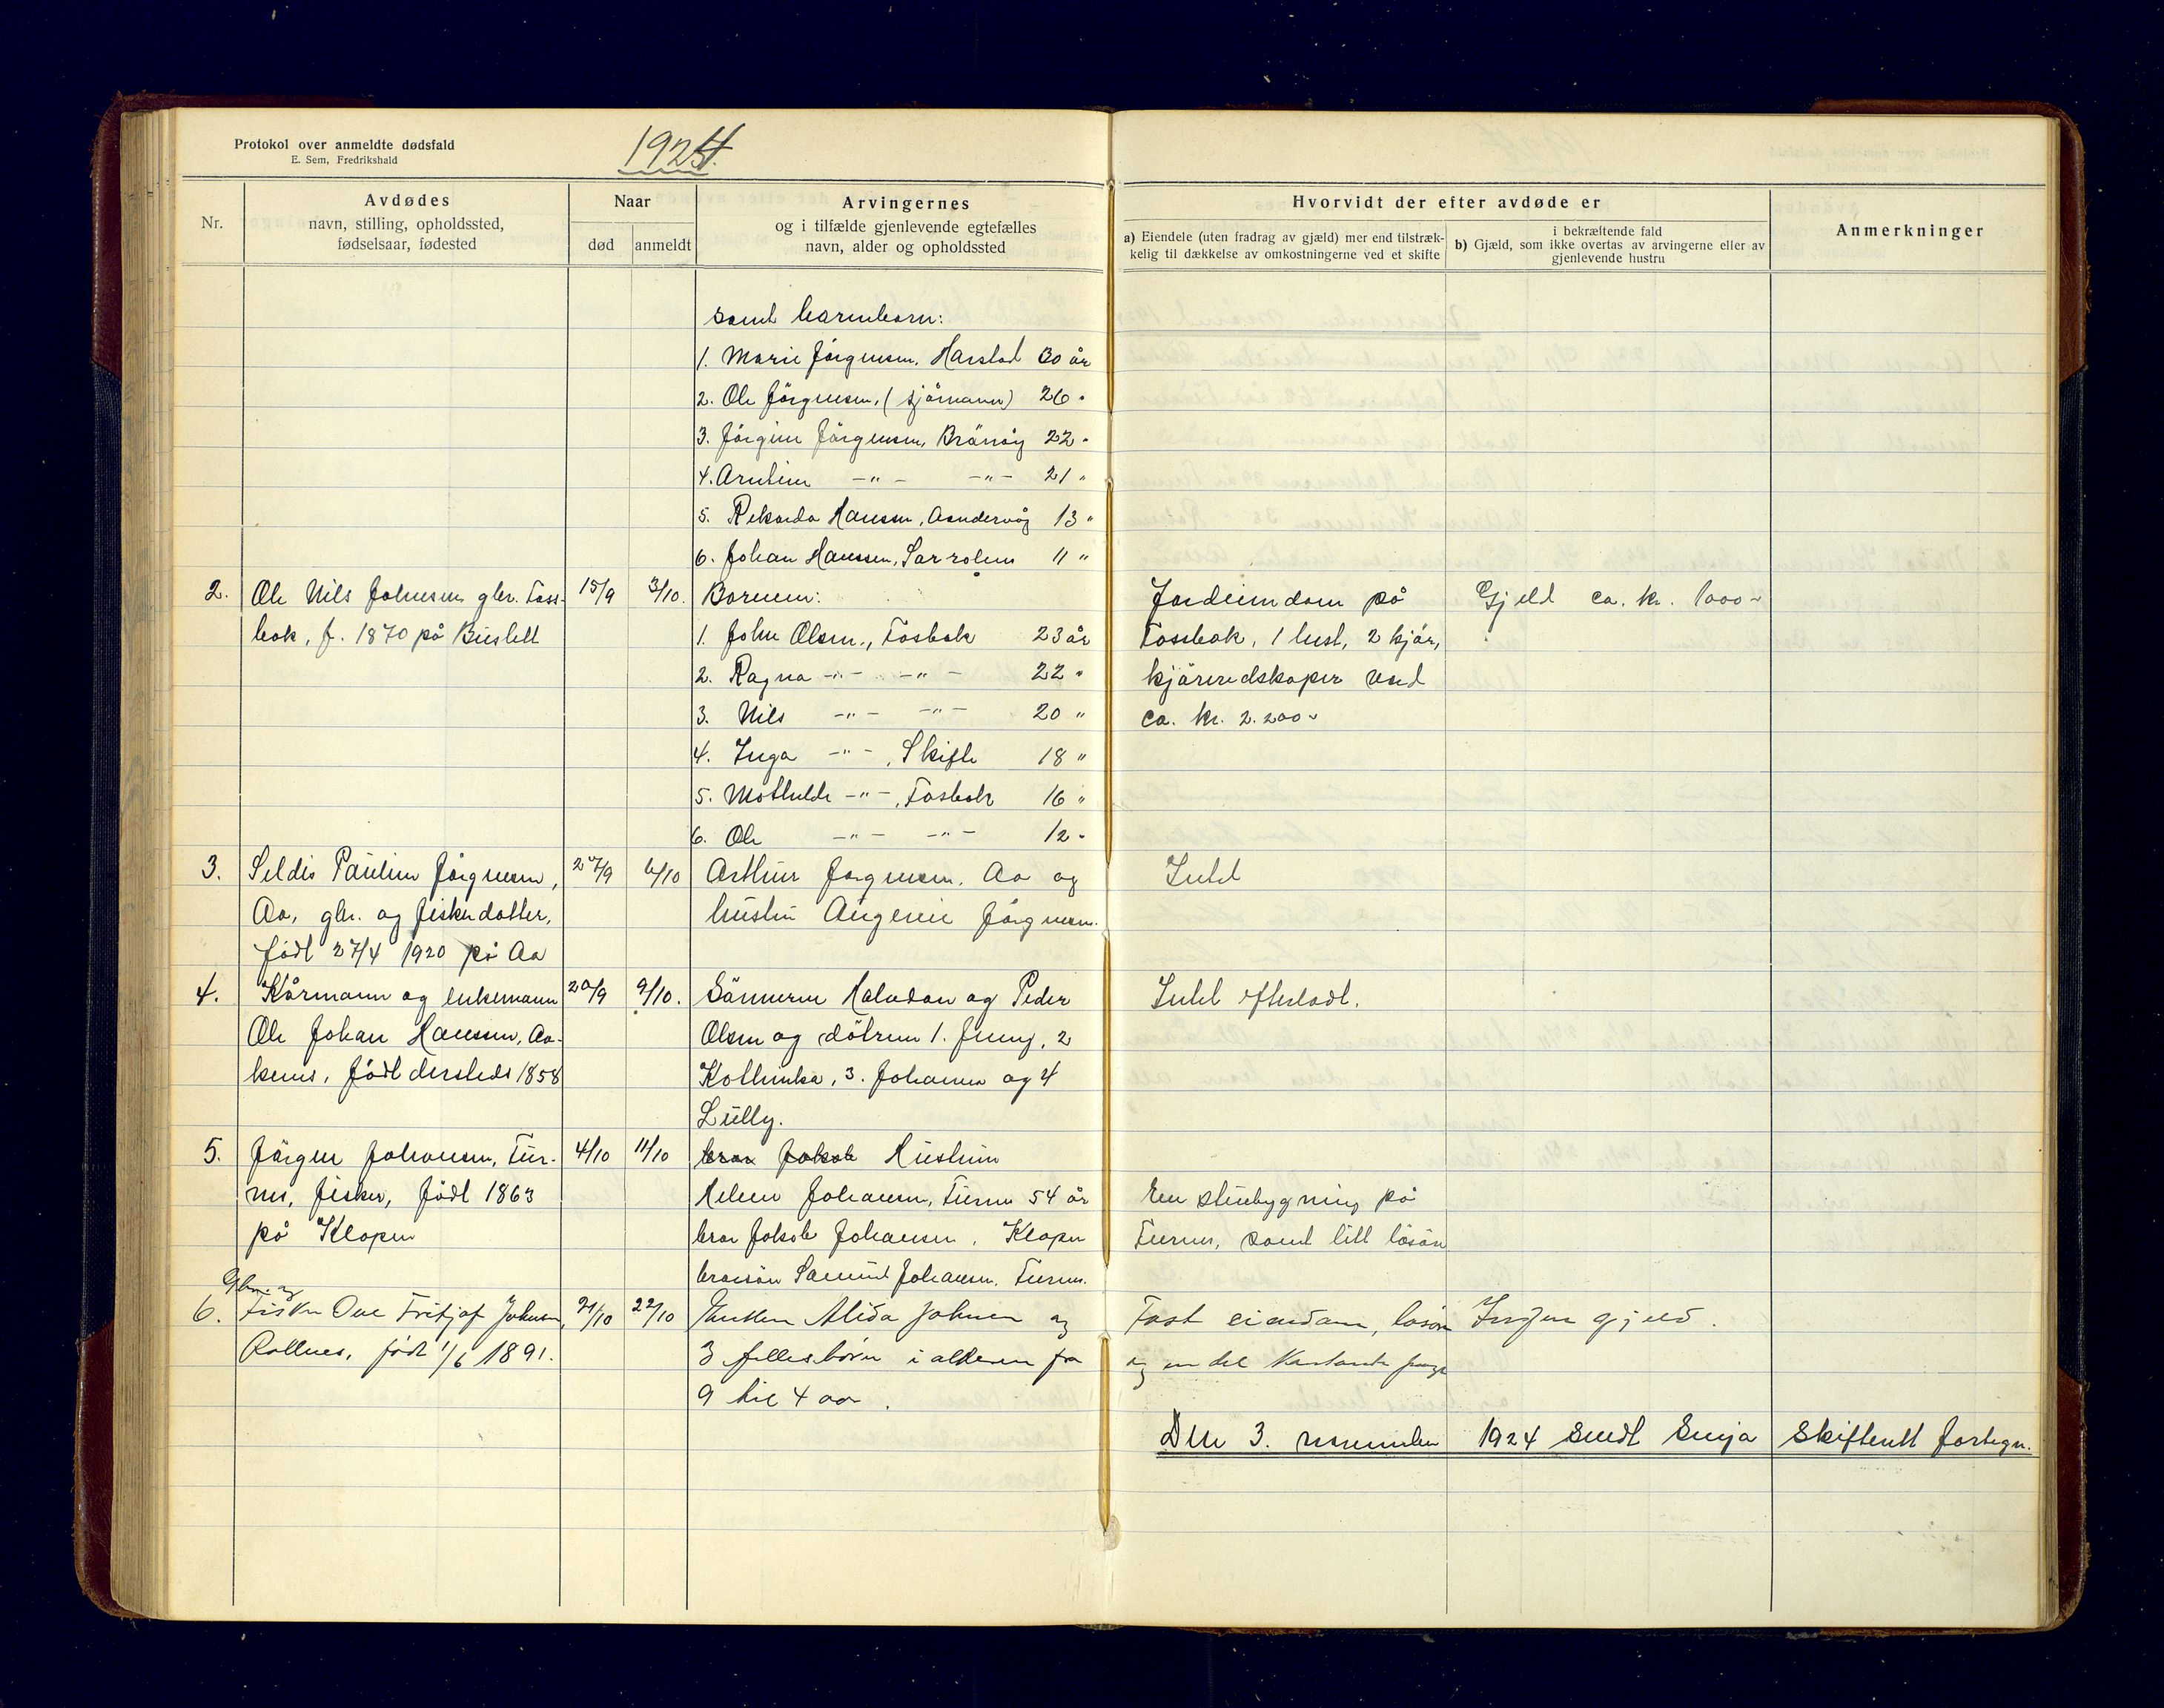 Protokol over anmeldte dødsfald
E. Sem, Fredrikshald
1924.
Nr.
Avdødes
navn, stilling, opholdssted,
fødselsaar, fødested
Naar
død
anmeldt
Arvingernes
og i tilfælde gjenlevende egtefælles
navn, alder og opholdssted
Hvorvidt der efter avdøde er
a) Eiendele (uten fradrag av gjæld) mer end tilstræk-
kelig til dækkelse av omkostningerne ved et skifte
i bekræftende fald
b) Gjæld, som ikke overtas av arvingerne eller av
gjenlevende hustru
Anmerkninger
samt barnebarn:
1. Marie Jörgensen, Harstad 30 år
2. Ole Jörgensen, (sjömann) 26 "
3. Jörgine Jörgensen, 22 "
4. Arntine -"- -"- 21 "
5. Rikarda Hansen, 13 "
6. Johan Hanssen, 11 "
2. Ole Nils Johnsen gbr. Foss-
bak, f. 1870 på
15/9
3/10.
Barnen:
1. John Olsen, Fosbak 23 år
2. Ragna -"- -"- 22 "
3. Nils -"- -"- 20 "
4. Inga -"-, 18 "
5. Mathilde -"-, Fosbak 16 "
6. Ole -"- -"- 12 "
Jordeiendom på
Fossbak, 1 hest, 2 kjör,
kjöreredskaper verd
ca. kr. 2.200-
Gjeld ca. kr. 1000-
3. Seldis Pauline Jörgensen,
Aa, gbr. og fiskerdatter,
født 27/4 1920 på Aa
27/9
6/10
Arthur Jörgensen, Aa og
hustru Jörgensen.
Intet
4. Kårmann og enkemann
Ole Johan Hansen, Aa-
kenes, födt dersteds 1858
20/9
9/10.
Sönnerne Halvdan og Peder
Olsen og dötrene 1. Jenny, 2
3. Johanna og 4
Lilly.
Intet efterladt.
5. Jörgen Johansen,
fisker, födt 1863
på Klopen
4/10
11/10
bror Jakob Hustruen
Helene Johansen, 54 år
bror Jakob Johansen, Klopen
brorsön Johansen,
En stuebygning på
samt litt lösöre
Gbr. og
6. Fisker Ove Fritjof Johnsen,
Rollnes, född 1/6 1891.
21/10
22/10
Enken Alida Johnsen og
3 fellesbörn i alderen fra
9 til 4 aar.
Fast eiendom, lösöre
og en del
Ingen gjeld.
Den 3. november 1924 sendt Senja skifterett fortegn.